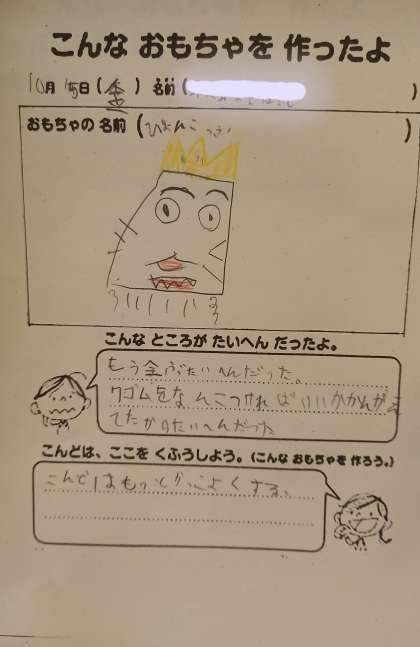 こんな おもちゃを 作ったよ
10月 15日 (金) 名前 ( )
おもちゃの 名前 (ぴょんこ )
こんな ところが たいへん だったよ。
もう全ぶたいへんだった。
ワゴムをなんこつければいいかかんがえ
てたからたいへんだった
こんどは、ここを くふうしよう。(こんな おもちゃを 作ろう。)
こんどはもっとかっこよくする。